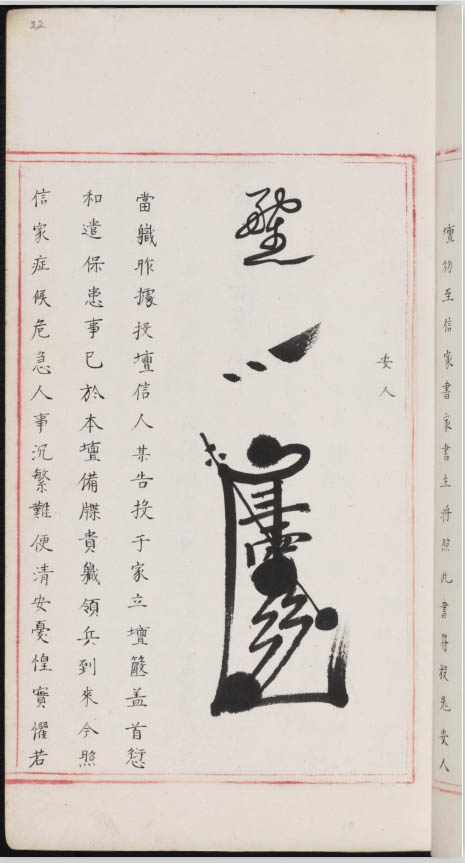 22
壇初至信家書家書主將照此書符投鬼安人
安人
當軄昨據投壇信人某告投于家立壇盖首愆
和遣保患事已於本壇備牒貴軄領兵到來今照
信家症候危急人事沉繁難便清安憂惶實懼若